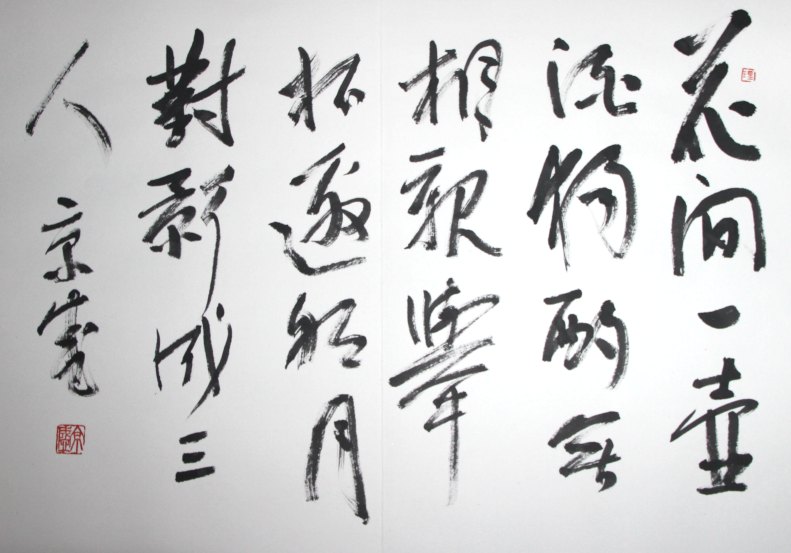 花間一壺
酒獨酌無
相親舉
杯邀明月
對影成三
人
京